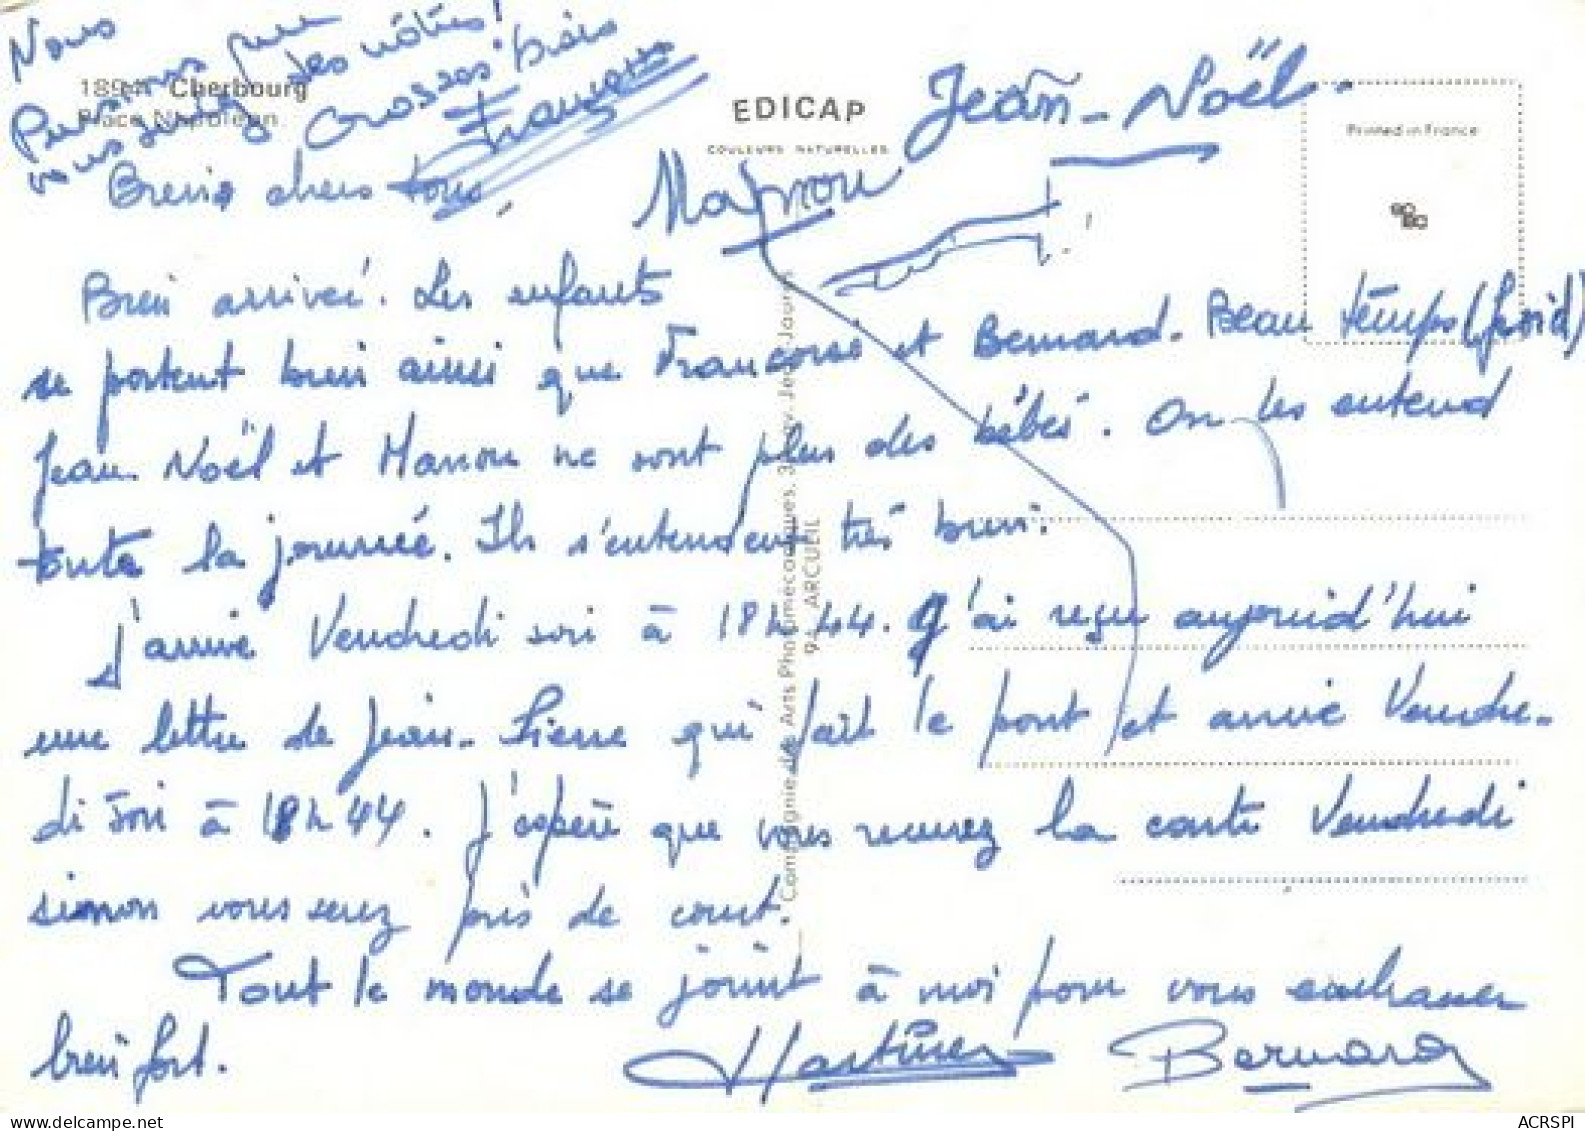 Nous
Pensions que
vous seriez des nôtres!
Grosses bises
Françoise
1894 - Cherbourg
Place Napoléon
EDICAP
COULEURS NATURELLES
Jean-Noël
Manon
Printed in France
Biens chers tous
Bien arrivée. Les enfants
se portent bien ainsi que Françoise et Bernard. Beau temps (froid)
Jean Noël et Manon ne sont plus des bébés. On les entend
toute la journée. Ils s'entendent très bien.
J'arrive Vendredi soir à 18h44. J'ai reçu aujourd'hui
une lettre de Jean-Pierre qui fait le pont et arrive Vendre-
di soir à 18h44. J'espère que vous recevrez la carte Vendredi
sinon vous serez pris de court.
Tout le monde se joint à moi pour vous embrasser
bien fort.
Martine
Bernard
Compagnie des Arts Photomécaniques, 3 av. Jean Jaurès
94 ARCUEIL
ACRSPI